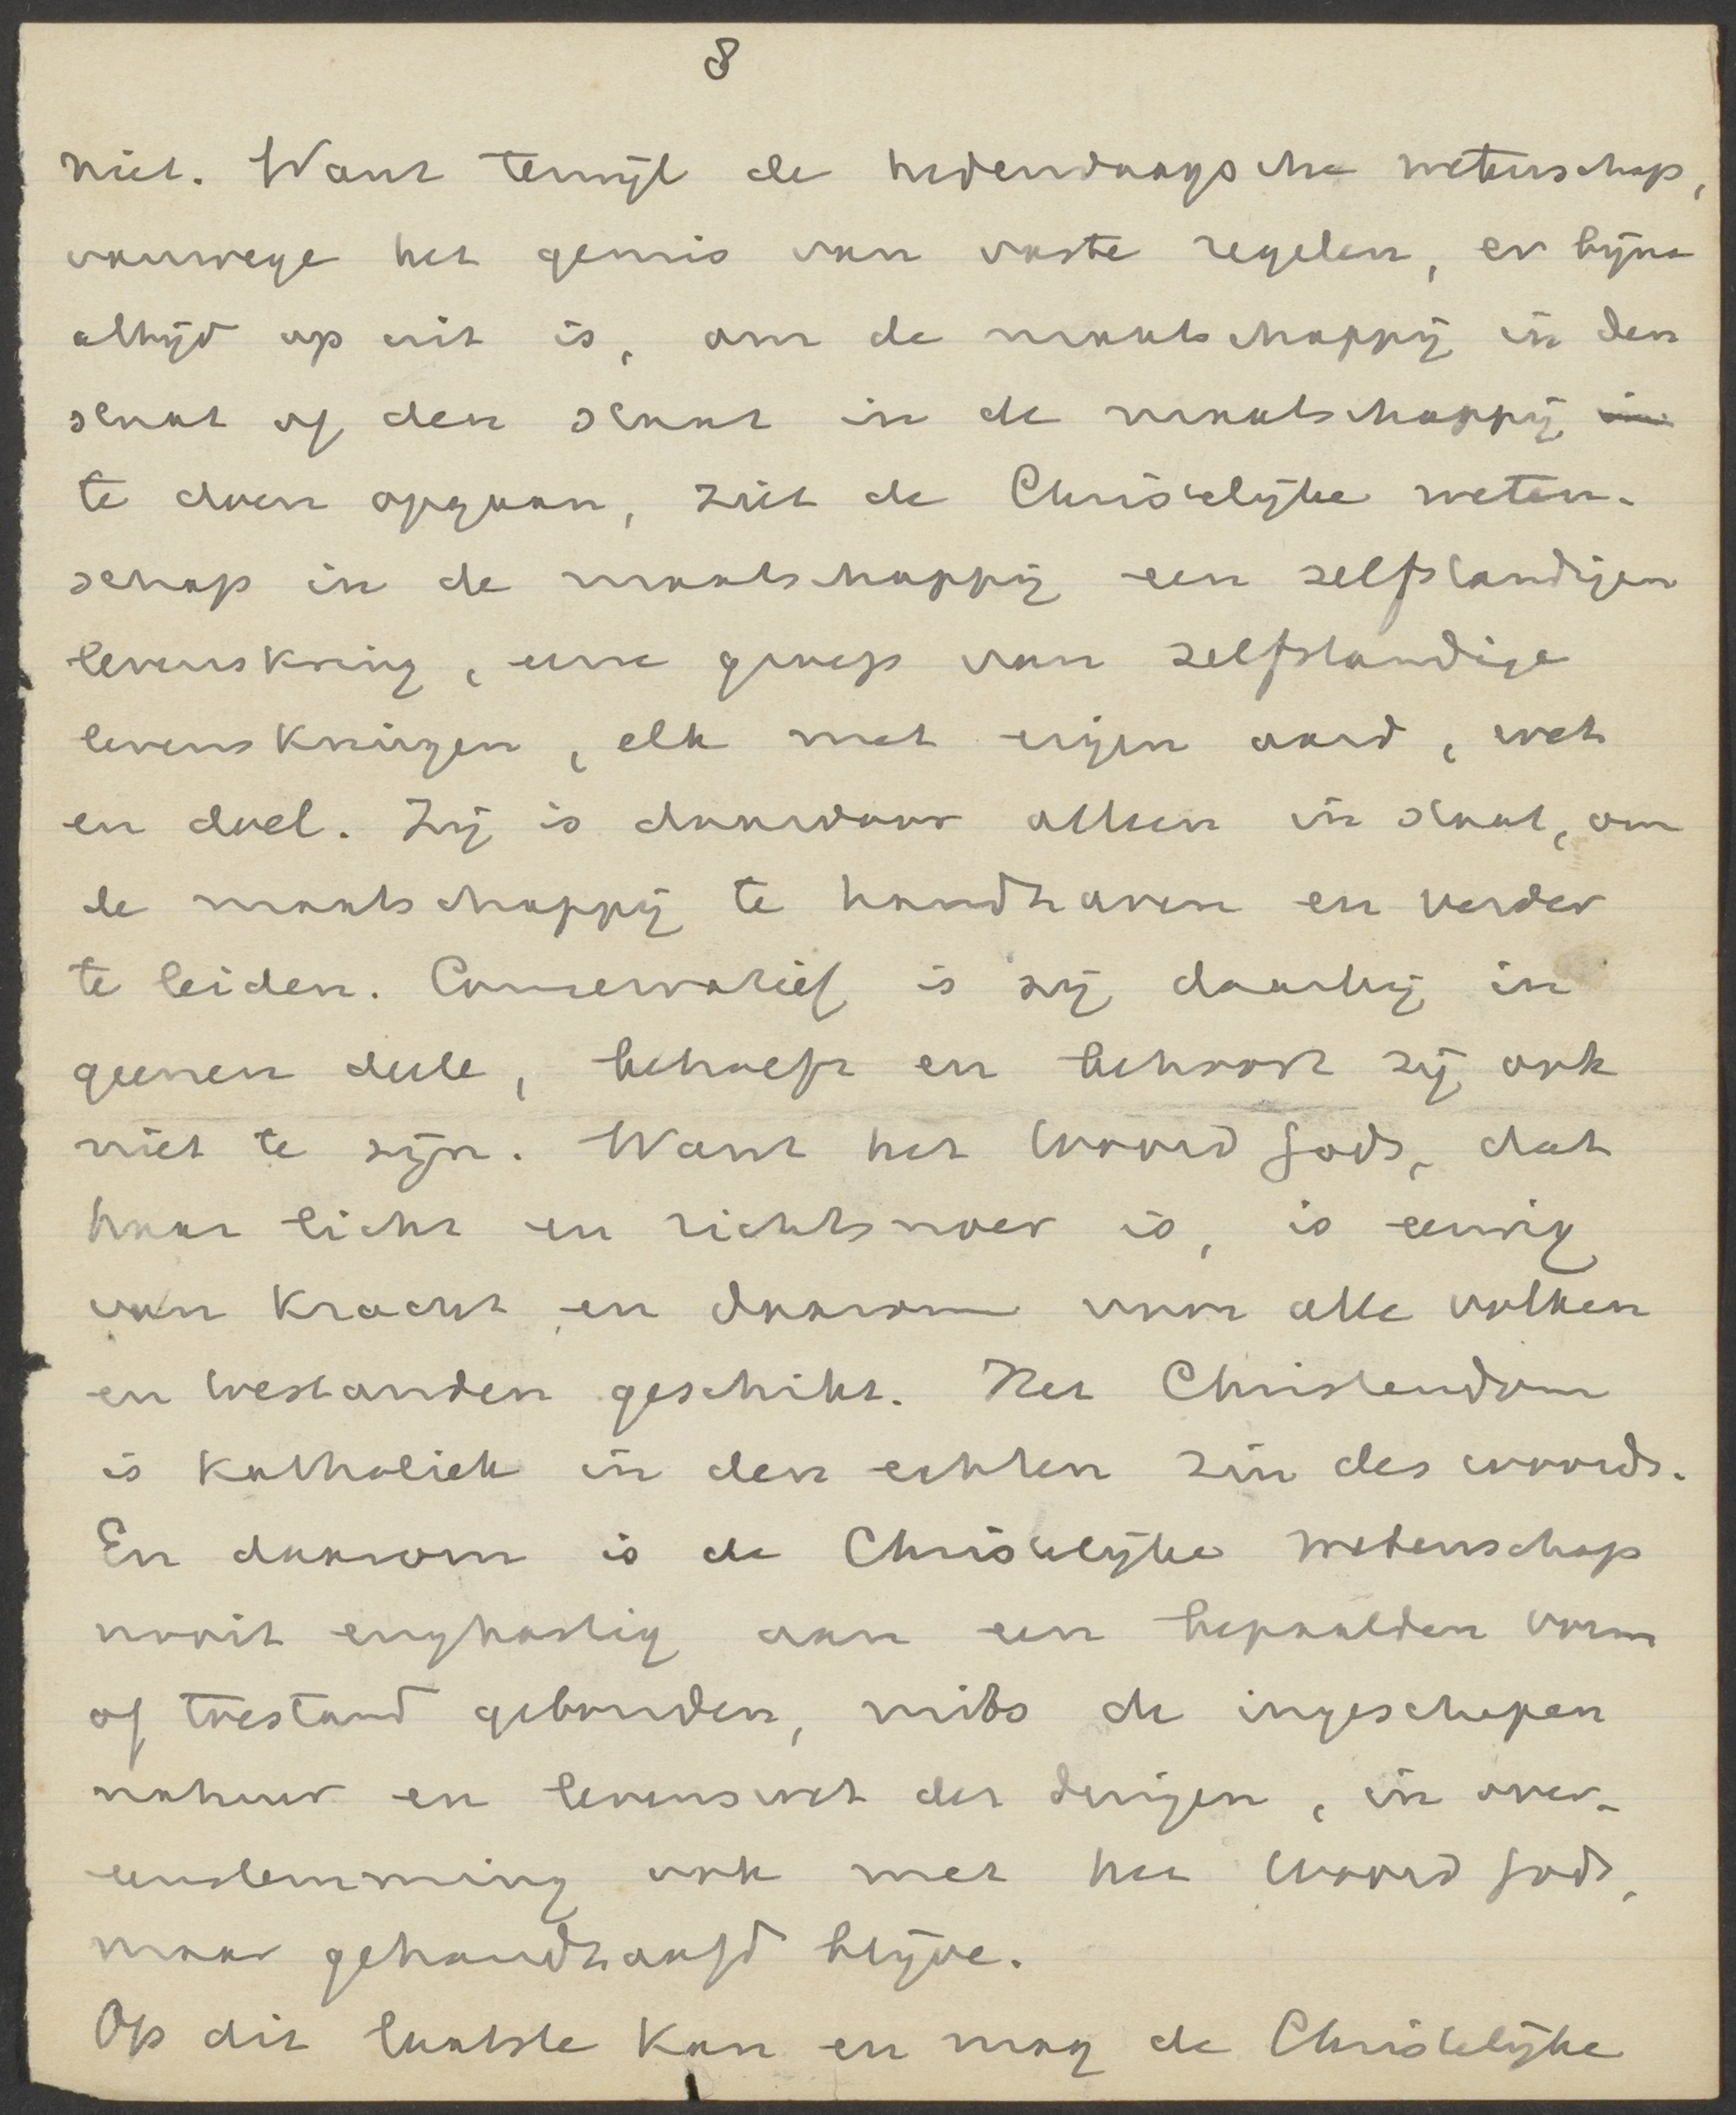 8
niet. Want terwijl de hedendaagsche wetenschap,
vanwege het gemis van vaste regelen, er bijna
altijd op uit is, om de maatschappij in den
staat of den staat in de maatschappij in
te doen opgaan, ziet de Christelijke weten-
schap in de maatschappij een zelfstandigen
levenskring, eene groep van zelfstandige
levenskringen, elk met eigen aard, wet
en doel. Zij is daardoor alleen in staat, om
de maatschappij te handhaven en verder
te leiden. Conservatief is zij daarbij in
geenen deele, behoeft en behoort zij ook
niet te zijn. Want het Woord Gods, dat
haar licht en richtsnoer is, is eeuwig
van kracht en daarom voor alle volken
en toestanden geschikt. Het Christendom
is katholiek in den echten zin des woords.
En daarom is de Christelijke wetenschap
nooit enghartig aan een bepaalden vorm
of toestand gebonden, mits de ingeschapen
natuur en levenswet der dingen, in over-
eenstemming ook met het Woord Gods,
maar gehandhaafd blijve.
Op dit laatste kan en mag de Christelijke